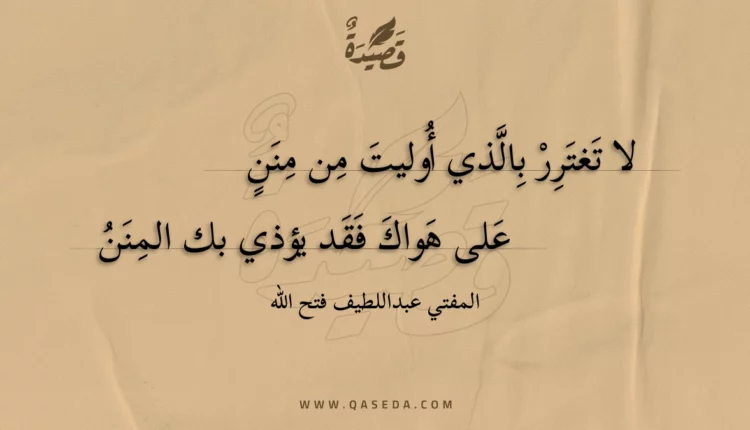 قَصِيْدَةٌ
لا تَغتَرِرْ بِالَّذي أُوليتَ مِن مِنَنٍ
عَلى هَواكَ فَقَد يؤذي بك المِنَنُ
المفتي عبداللطيف فتح الله
WWW.QASEDA.COM